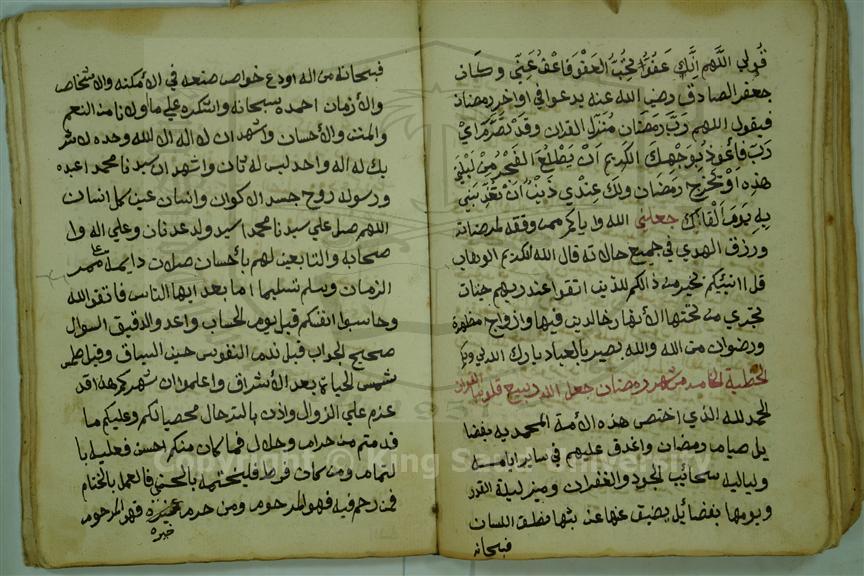 قُولي اللَّهم اِنَّكَ عَفُوٌّ تُحِبُّ العَفْوَ فَاعْفُ عَنِّي وكان
جعفر الصادق رضي الله عنه يدعوا في اواخر رمضان
فيقول اللهم رَبَّ رَمَضَان مُنْزِل القران وقد تصَرَّمَ اي
رَبّ فأعُوذ بوَجْهِكَ الكريم اَنْ يَطْلعَ الفجر مِنْ لَيلَتي
هذه اَوْ يخْرج رَمَضَان ولك عِنْدي ذَنْبٌ اَنْ تُعَذِّبني
بهِ يَومَ اَلْقَاكَ جعلني الله واياكم ممن وفقه لمرضاته
ورزق الهدي في جميع حالاته قال الله الكريم الوهاب
قل اانبئكم بخير من ذالكم للذين اتقوا عند ربهم جنات
تجري من تحتها الأنهار خالدين فيها وازواج مطهرة
ورضوان من الله والله بصير بالعباد بارك الله لي ولكم
الخطبة الخامسة من شهر رمضان جعل الله ربيع قلوبنا القران
الحمد لله الذي اختص هذه الأمة المحمديه بفضا
يل صيام رمضان واغدق عليهم في ساير ايامه
ولياليه سحائب الجود والغفران وميز ليلة القدر
ويومها بفضائل يضيق عنها عن بثها نطق اللسان
فبحانه
فبحانه من اله اودع خواص صنعه في الأمكنه والاشخاص
والأزمان احمده سبحانه واشكره علي ما اولانا من النعم
والمنن والأحسان واشهد ان لا اله الا الله وحده لا شر
يك له اله واحد ليس له ثان واشهد ان سيدنا محمدا عبده
ورسوله روح جسد الاكوان وانسان عين كل انسان
اللهم صل علي سيدنا محمد سيد ولد عدنان وعلي اله وا
صحابه والتابعين لهم بأحسان صلات دايمة علي ممر
الزمان وسلم تسليما اما بعد ايها الناس فاتقوا الله
وحاسبوا انفسكم قبل يوم الحساب واعد والدقيق السوال
صحيح الجواب قبل ندم النفوس حين السياق وقبل طمس
شمس الحيات بعد الأشراق واعلموا ان شهركم هذا قد
عزم علي الزوال واذن بالمترحال محصيا لكم وعليكم ما
قدمتم من حرام وحلال فمن كان منكم احسن فعليه با
لتمام ومن كان فرط فليختمه بالحسني فالعمل بالختام
فمن رحم فيه فهو المرحوم ومن حرم خيره فهو المحروم
خيره